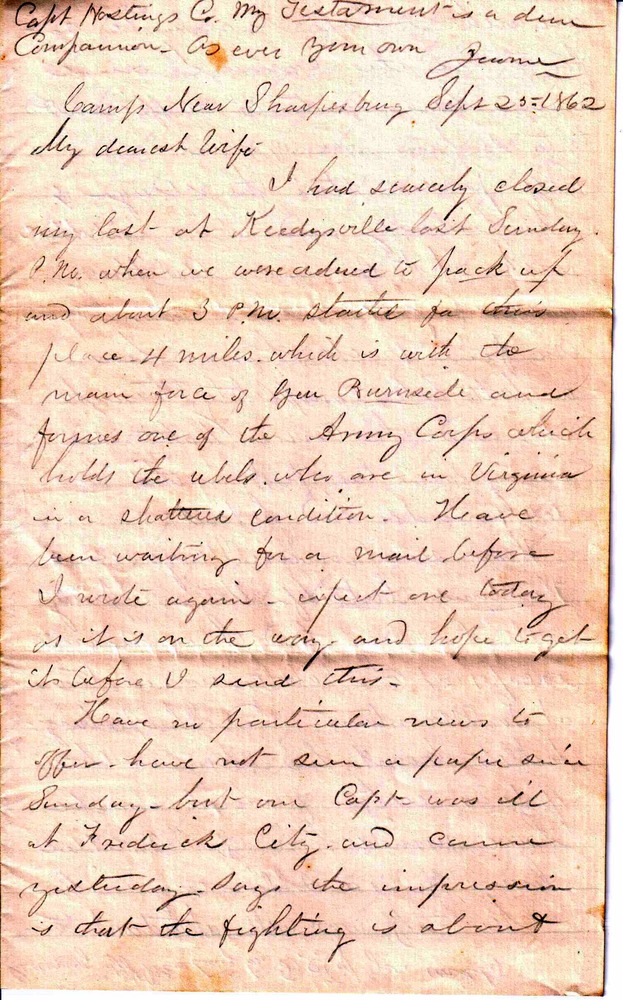 Capt Hastings Co. My Testament is a dear
Companion - As ever Your own Jerome
Camp Near Sharpesburg Sept 25 - 1862
My dearest Wife
I had scarcely closed
my last at Keedysville last Sunday
P.M. when we were ordered to pack up
and about 3 P.M. started for this
place - 4 miles. which is with the
main force of Gen Burnside and
forms one of the Army Corps which
holds the rebels. who are in Virginia
in a shattered condition. Have
been waiting for a mail before
I wrote again - expect one today
as it is on the way - and hope to get
it before I send this -
Have no particular news to
offer - have not seen a paper since
Sunday - but our Capt was ill
at Frederick City - and came
yesterday - Says the impression
is that the fighting is about